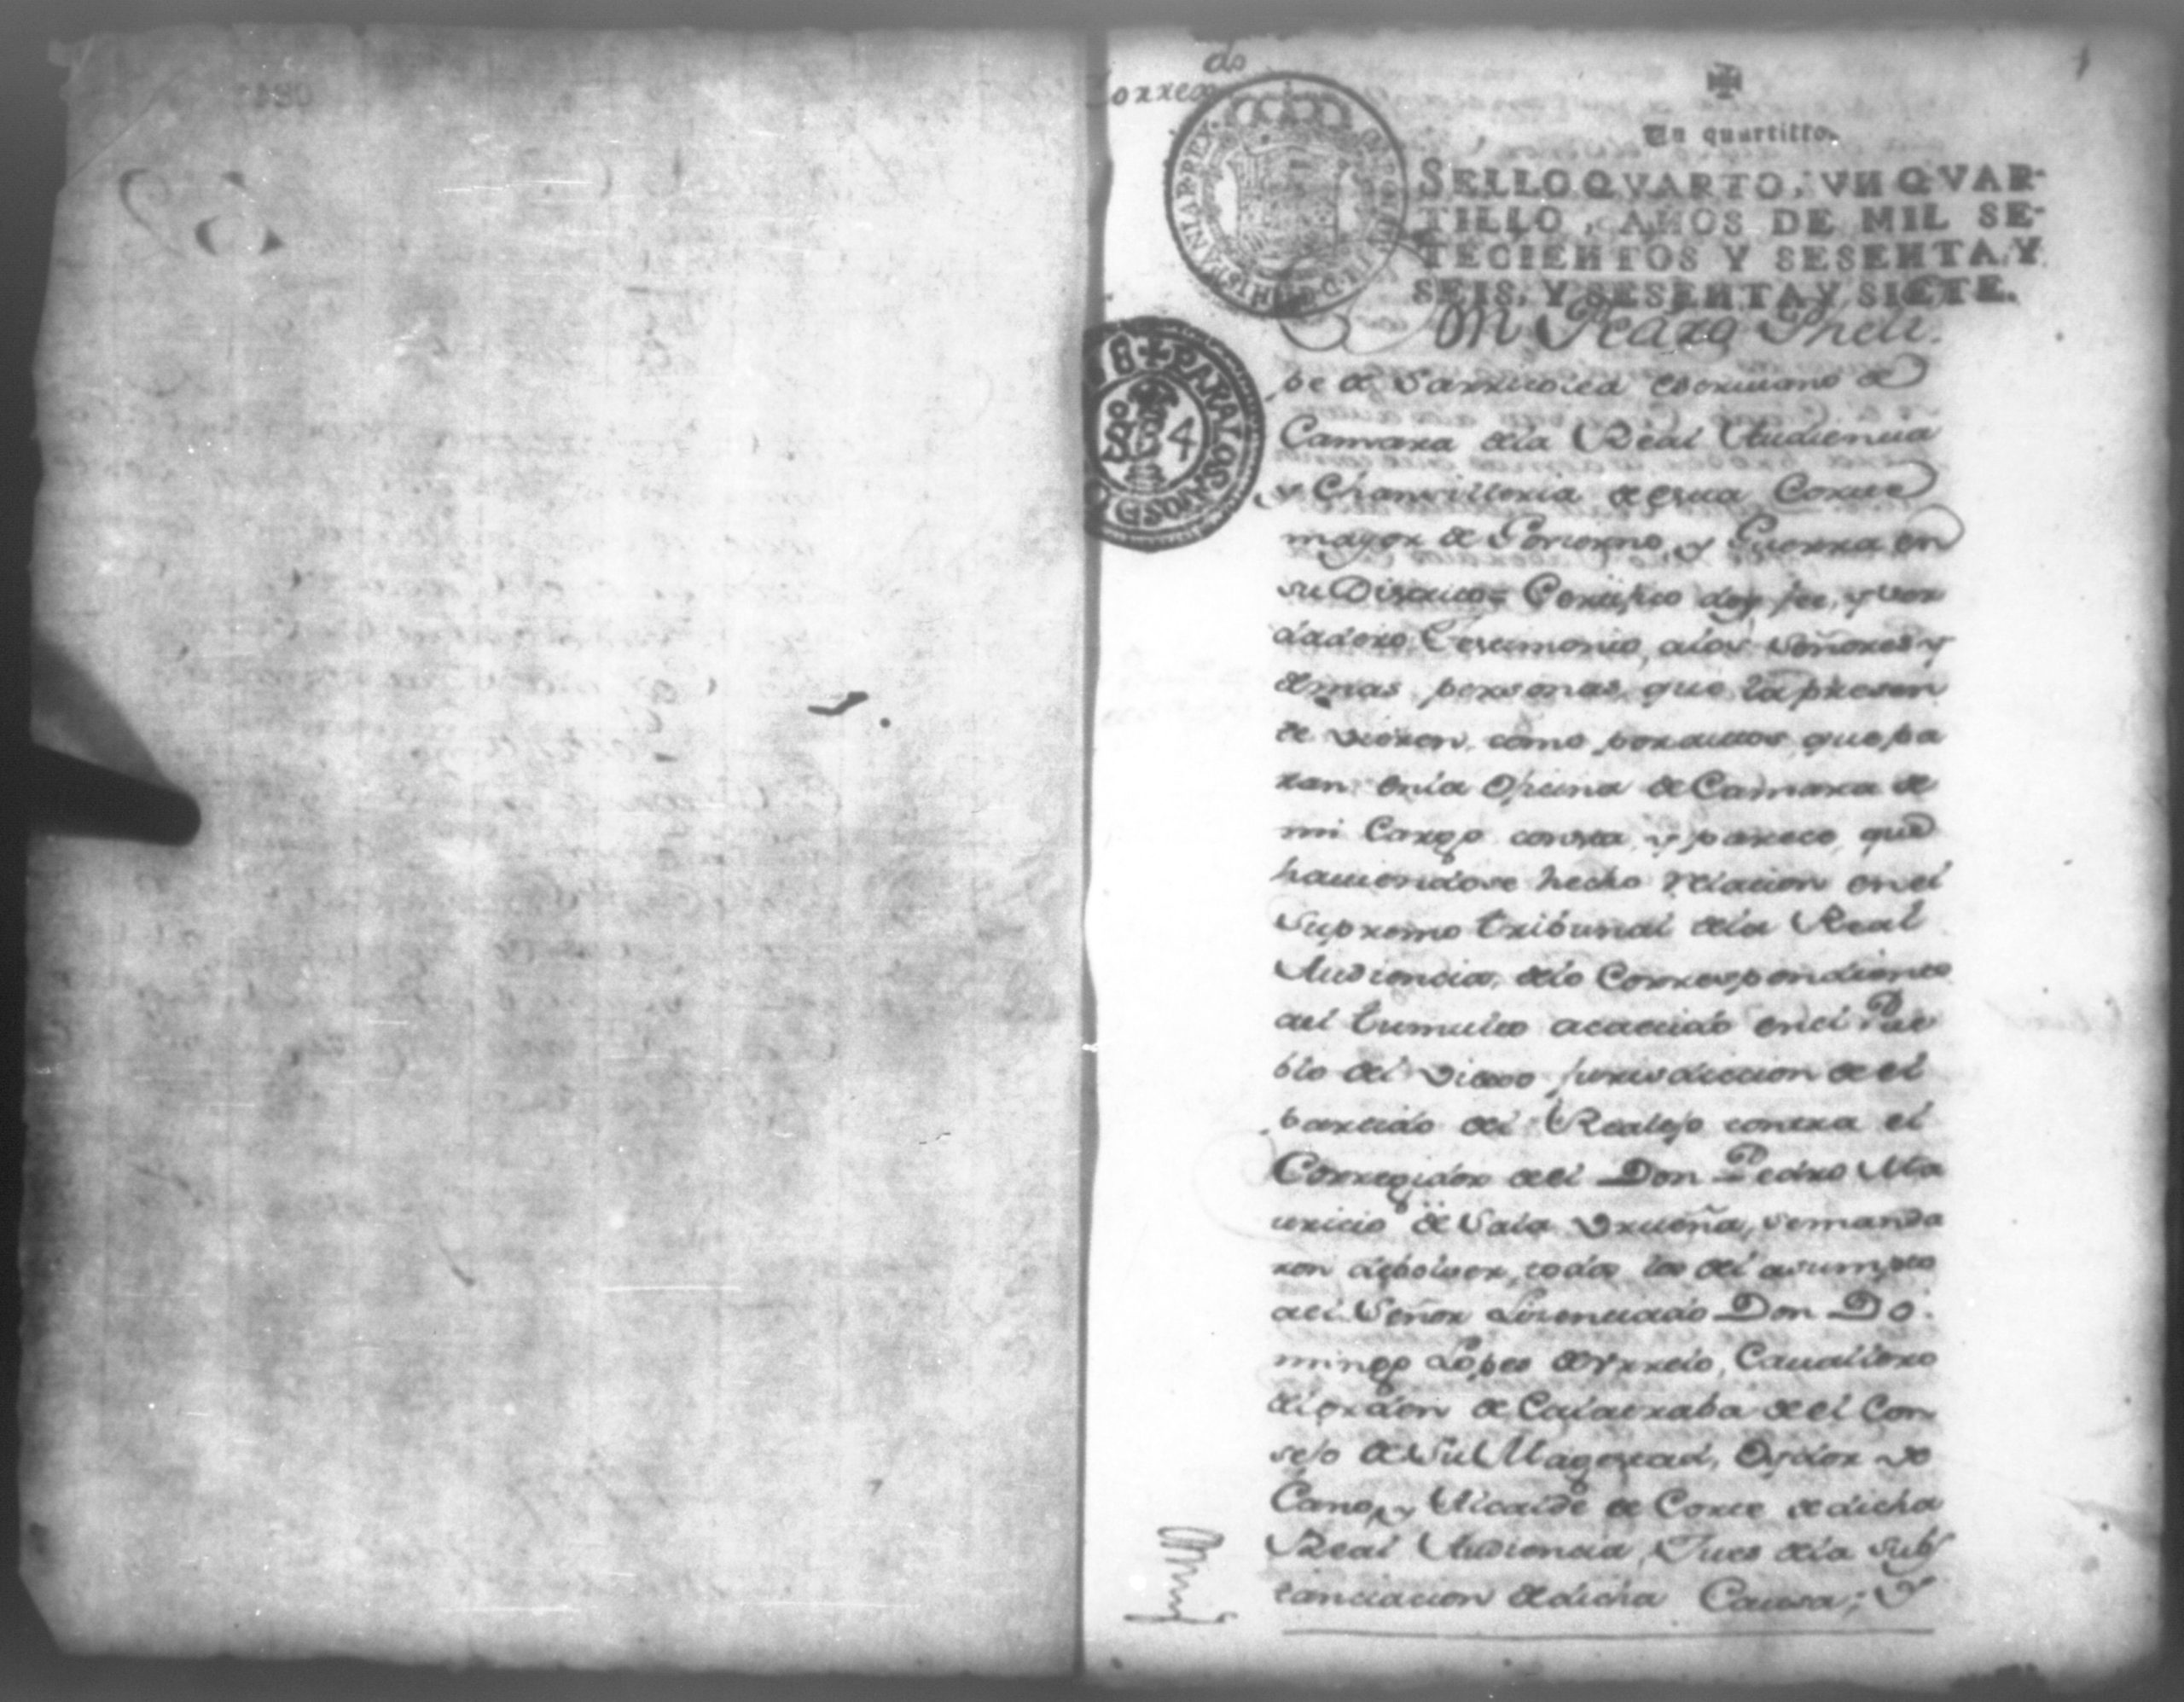 do
Correg
1
Un quartillo.
SELLO QVARTO, VN QVAR-
TILLO, AÑOS DE MIL SE-
TECIENTOS Y SESENTA Y
SEIS, Y SESENTA Y SIETE.
Don Pedro Pheli
pe de escriuano de
Camara dela Real Audiencia
y Chancilleria de esta Corte
mayor de Gouierno, y Guerra en
su Districto= Certifico doy fee, y ver
dadero testimonio, alos señores y
demas personas, que la presen
te vieren, como por autos, que pa
ran enla oficina de Camara de
mi Cargo consta, y parece, que
hauiendose hecho relacion en el
Supremo tribunal dela Real
Audiencia, delo Correspondiente
ael tumulto acaecido enel Pue
blo del Viexo jurisdiccion de el
partido del Realejo contra el
Corregidor del Don Pedro Ma
uricio de Sala se manda
ron debolver, todos los del asumpto
ael Señor Licenciado Don Do
mingo López de Vrrelo, Cauallero
del orden de Calatraba de el Con
sejo de Su Magestad, Oydor de
Cano, y Alcalde de Corte de dicha
Real Audiencia, Jues dela subs
tanciacion de dicha Causa; Y
PARA LOS AÑOS D
S 4
HISPANIAR REX